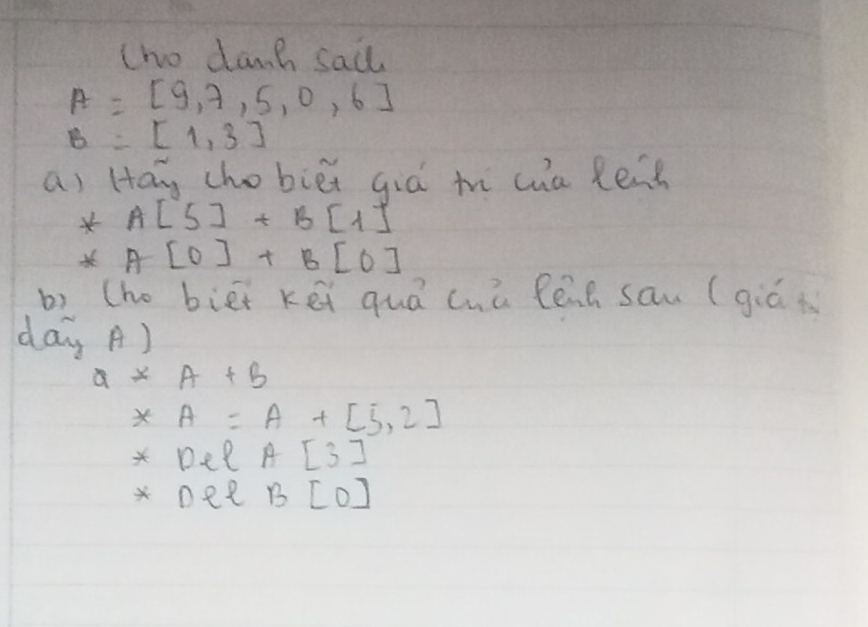 Cho danh sách
A = [9,7,5,0,6]
B = [1,3]
a) Hãy cho biết giá trị của lệnh
* A[5] + B[1]
* A[0] + B[0]
b) Cho biết kết quả của lệnh sau (giá trị
dãy A)
a * A + B
* A = A + [5,2]
* Del A[3]
* Del B[0]